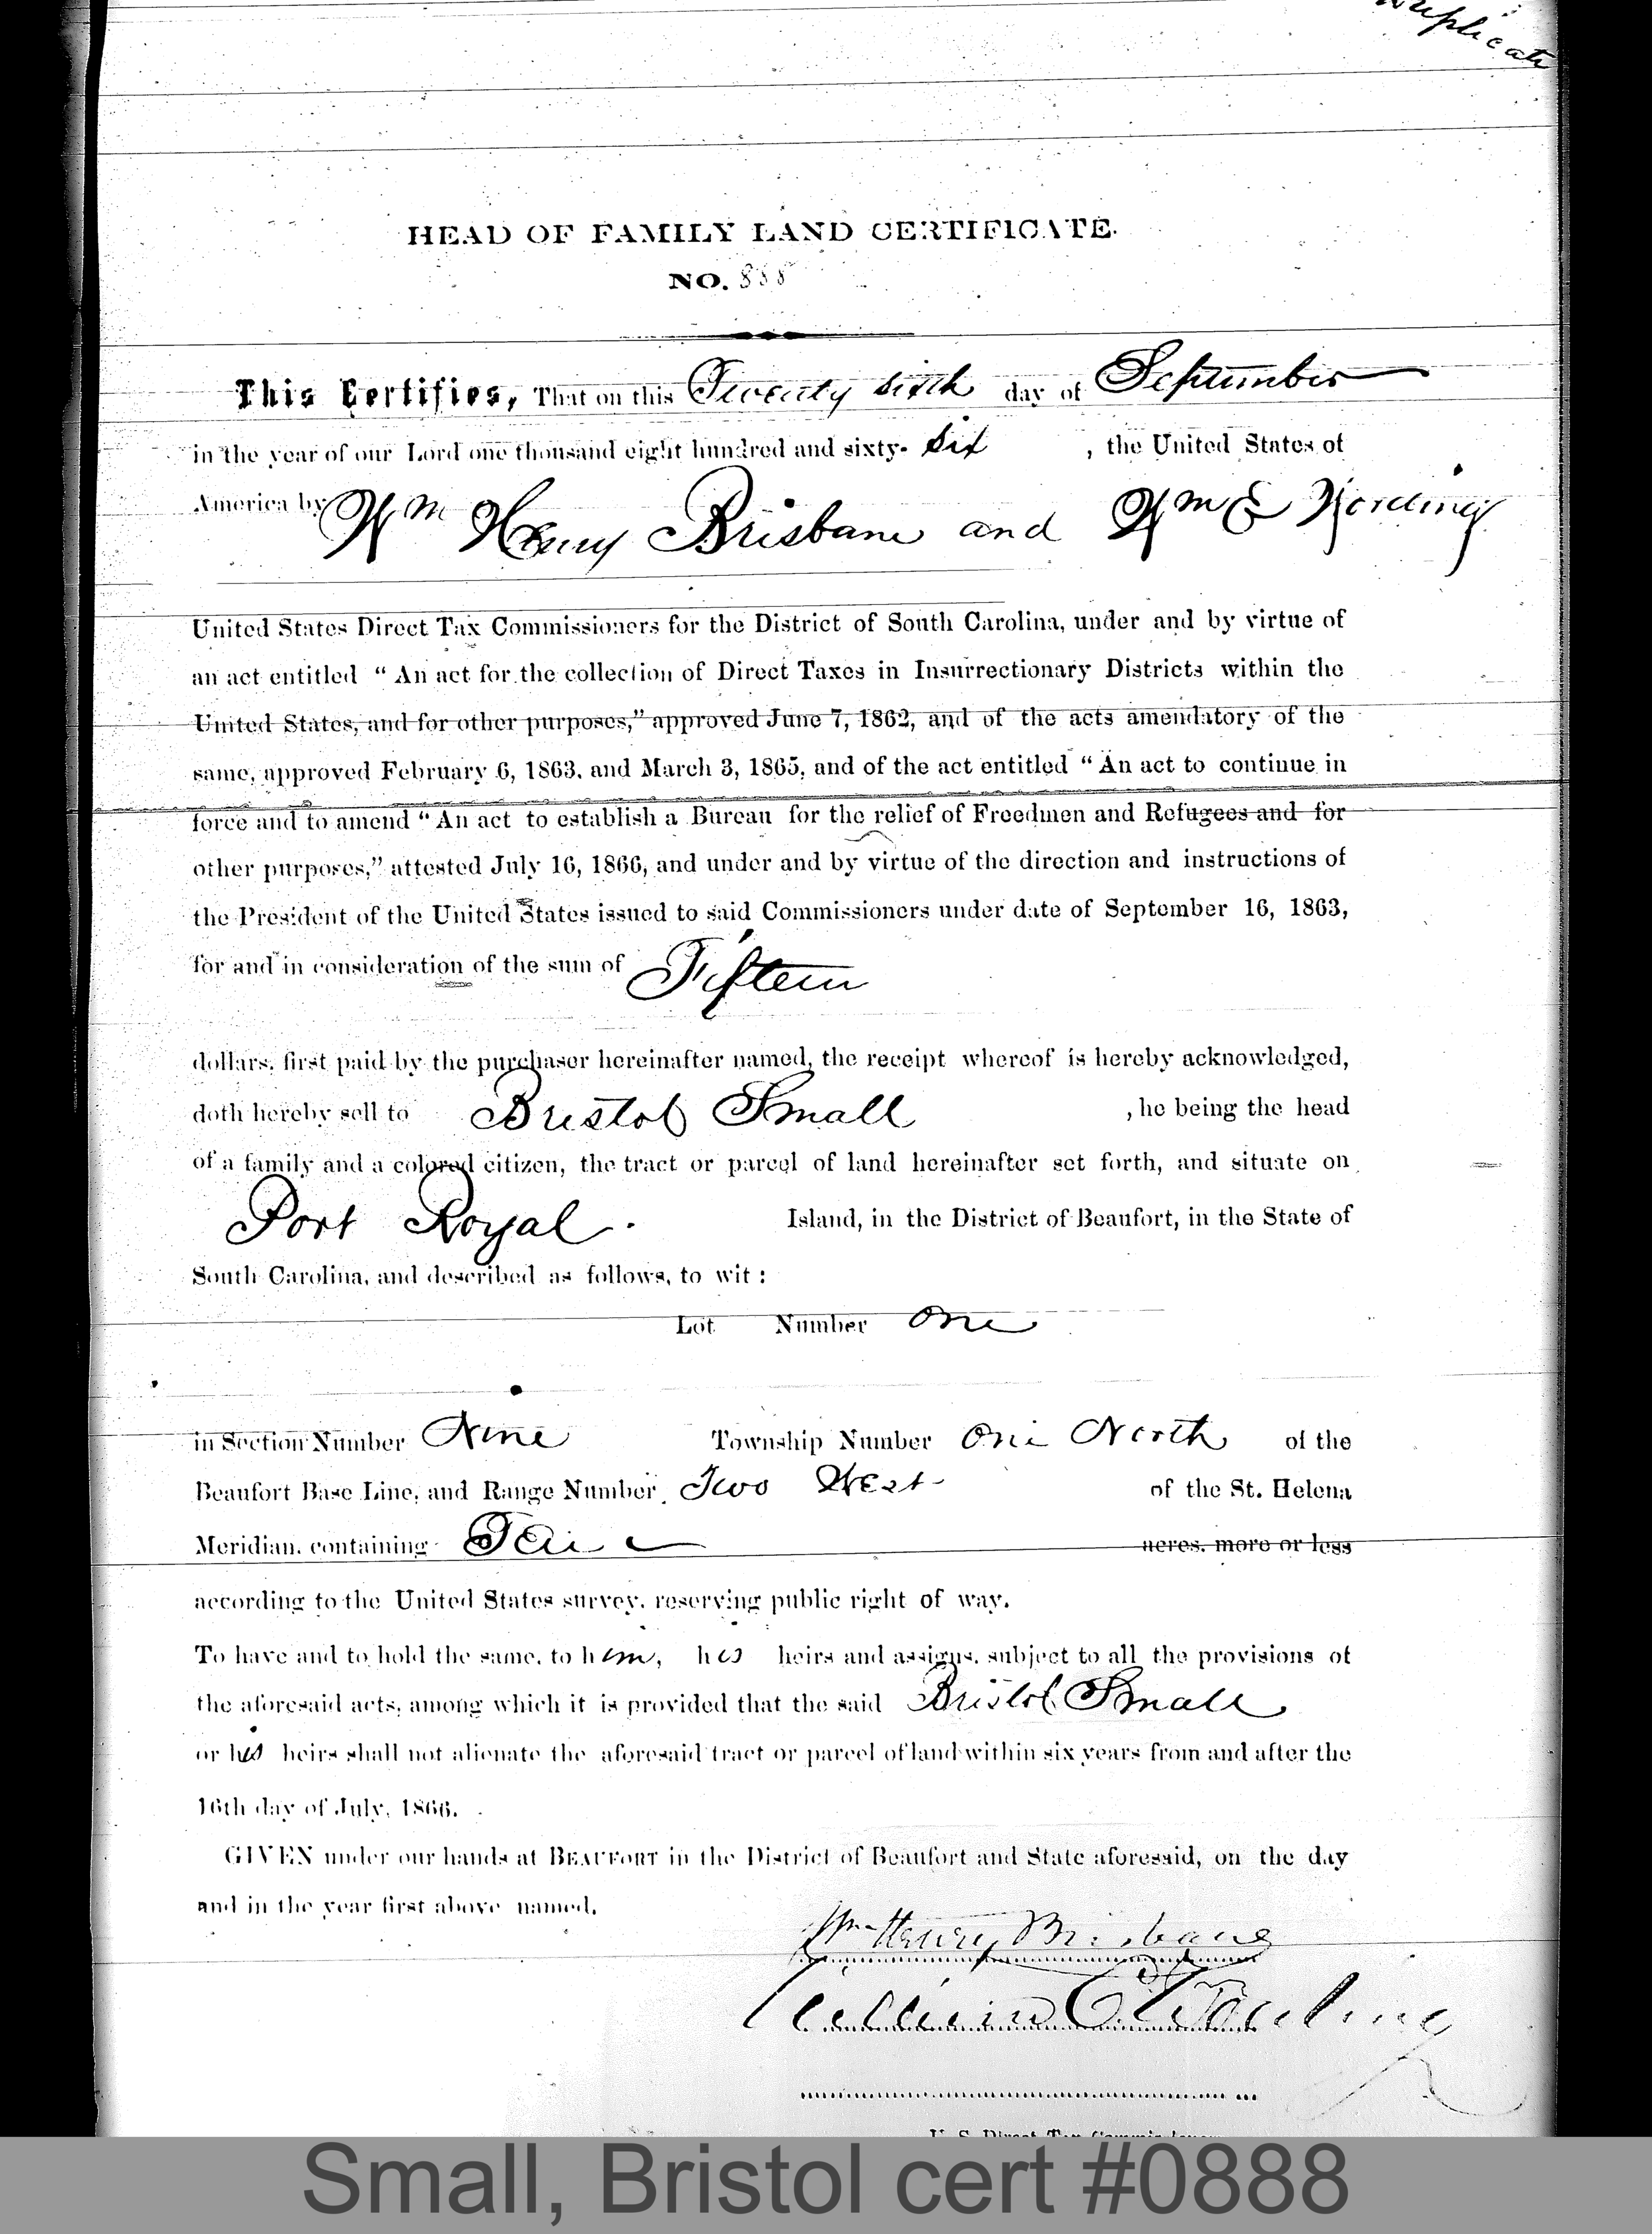 Duplicate
HEAD OF FAMILY LAND CERTIFICATE.
NO. 888
This Certifies, That on this Twenty sixth day of September
in the year of our Lord one thousand eight hundred and sixty- six , the United States of
America by Wm Henry Brisbane and Wm E Wording
United States Direct Tax Commissioners for the District of South Carolina, under and by virtue of
an act entitled “ An act for the collection of Direct Taxes in Insurrectionary Districts within the
United States, and for other purposes,” approved June 7, 1862, and of the acts amendatory of the
same, approved February 6, 1863, and March 3, 1865, and of the act entitled “ An act to continue in
force and to amend “ An act to establish a Bureau for the relief of Freedmen and Refugees and for
other purposes,” attested July 16, 1866, and under and by virtue of the direction and instructions of
the President of the United States issued to said Commissioners under date of September 16, 1863,
for and in consideration of the sum of Fifteen
dollars, first paid by the purchaser hereinafter named, the receipt whereof is hereby acknowledged,
doth hereby sell to Bristol Small , he being the head
of a family and a colored citizen, the tract or parcel of land hereinafter set forth, and situate on
Port Royal . Island, in the District of Beaufort, in the State of
South Carolina, and described as follows, to wit :
Lot Number One
in Section Number Nine Township Number One North of the
Beaufort Base Line, and Range Number Two West of the St. Helena
Meridian, containing Ten acres, more or less
according to the United States survey, reserving public right of way.
To have and to hold the same, to him, his heirs and assigns, subject to all the provisions of
the aforesaid acts, among which it is provided that the said Bristol Small
or his heirs shall not alienate the aforesaid tract or parcel of land within six years from and after the
16th day of July, 1866.
GIVEN under our hands at BEAUFORT in the District of Beaufort and State aforesaid, on the day
and in the year first above named.
Wm Henry Brisbane
William E Wording
U. S. Direct Tax Commissioners
Small, Bristol cert #0888